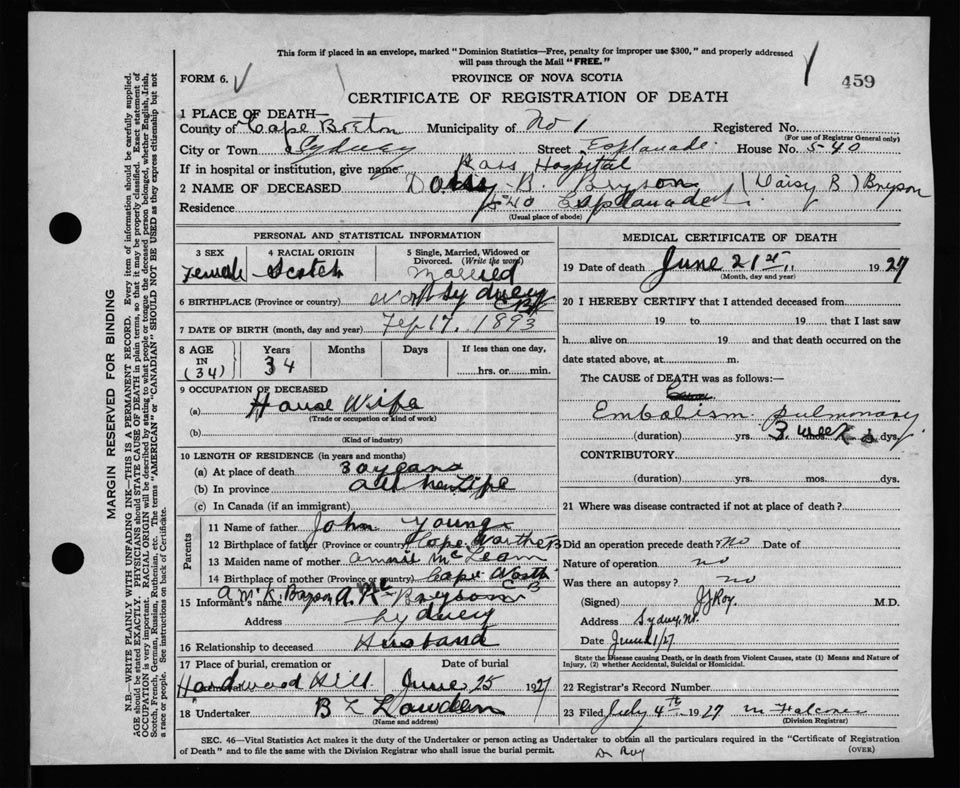 This form if placed in an envelope, marked "Dominion Statistics—Free, penalty for improper use $300," and properly addressed
will pass through the Mail "FREE."
FORM 6.
PROVINCE OF NOVA SCOTIA
459
CERTIFICATE OF REGISTRATION OF DEATH
1 PLACE OF DEATH—
County of Cape Breton Municipality of No 1 Registered No.
(For use of Registrar General only)
City or Town Sydney Street Esplanade. House No. 540
If in hospital or institution, give name Ross Hospital
2 NAME OF DECEASED Daisy B. Bryson (Daisy B) Bryson
Residence 540 Esplanade St.
(Usual place of abode)
PERSONAL AND STATISTICAL INFORMATION
3 SEX Female
4 RACIAL ORIGIN Scotch
5 Single, Married, Widowed or Divorced. (Write the word) Married
6 BIRTHPLACE (Province or country) Sydney CB
7 DATE OF BIRTH (month, day and year) Feb 17. 1893
8 AGE IN (34) Years 34 Months Days If less than one day, hrs. or min.
9 OCCUPATION OF DECEASED
(a) House Wife
(Trade or occupation or kind of work)
(b)
(Kind of industry)
10 LENGTH OF RESIDENCE (in years and months)
(a) At place of death 30 years
(b) In province all her life
(c) In Canada (if an immigrant)
Parents
11 Name of father John Young
12 Birthplace of father (Province or country)
13 Maiden name of mother Annie McLean
14 Birthplace of mother (Province or country) Cape North
15 Informant's name A. McK. Bryson
Address Sydney
16 Relationship to deceased Husband
17 Place of burial, cremation or Date of burial
Hardwood Hill June 25 1927
18 Undertaker
(Name and address)
MEDICAL CERTIFICATE OF DEATH
19 Date of death June 21st 1927
(Month, day and year)
20 I HEREBY CERTIFY that I attended deceased from
19 to 19 that I last saw
h alive on 19 and that death occurred on the
date stated above, at m.
The CAUSE of DEATH was as follows:—
Embalism pulmonary
(duration) yrs. 3 weeks mos. dys.
CONTRIBUTORY
(duration) yrs. mos. dys.
21 Where was disease contracted if not at place of death?
Did an operation precede death? no Date of
Nature of operation no
Was there an autopsy? no
(Signed) JJ Roy. M.D.
Address Sydney, N.
Date
State the Disease causing Death, or in death from Violent Causes, state (1) Means and Nature of
Injury, (2) whether Accidental, Suicidal or Homicidal.
22 Registrar's Record Number
23 Filed July 4th 1927 M Falconer
(Division Registrar)
SEC. 46—Vital Statistics Act makes it the duty of the Undertaker or person acting as Undertaker to obtain all the particulars required in the "Certificate of Registration
of Death" and to file the same with the Division Registrar who shall issue the burial permit. (OVER)
Dr Roy
MARGIN RESERVED FOR BINDING
N.B.—WRITE PLAINLY WITH UNFADING INK—THIS IS A PERMANENT RECORD. Every item of information should be carefully supplied.
AGE should be stated EXACTLY. PHYSICIANS should STATE CAUSE OF DEATH in plain terms, so that it may be properly classified. Exact statement of
OCCUPATION is very important. RACIAL ORIGIN will be described by stating to what people or tongue the deceased person belonged, whether English, Irish,
Scotch, French, German, Russian, Ruthenian, etc. The terms "AMERICAN" or "CANADIAN" SHOULD NOT BE USED as they express citizenship but not
a race or people. See instructions on back of Certificate.